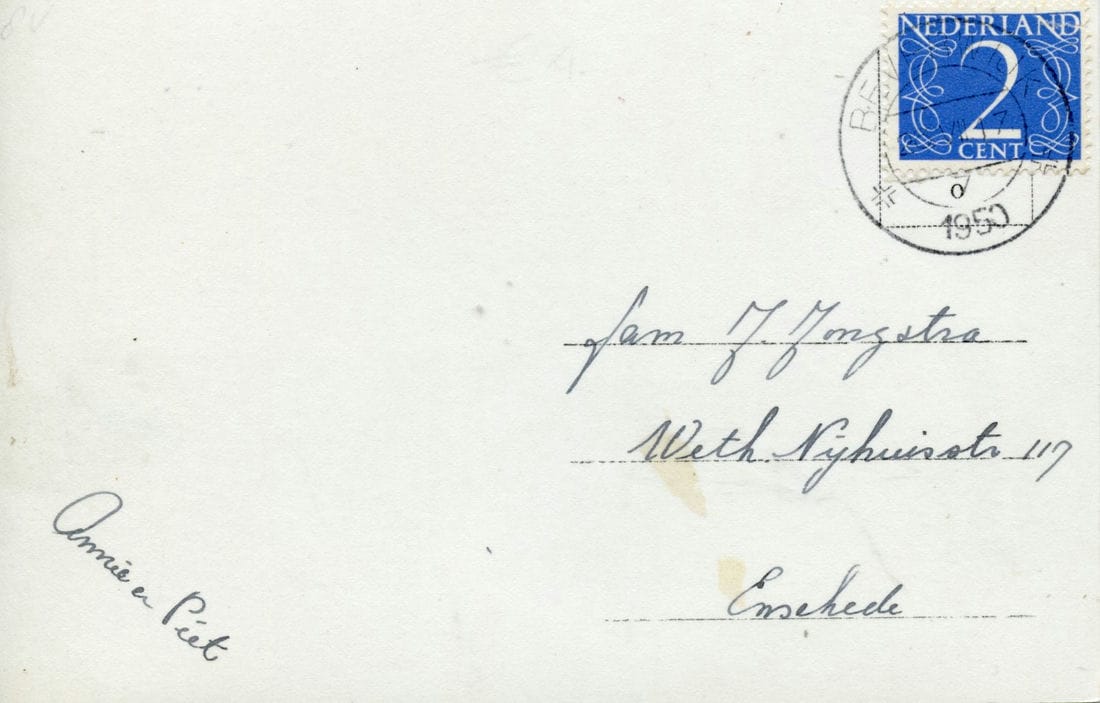 NEDERLAND
2
CENT
BEVERWIJK
1950
fam J. Jongstra
Weth Nijhuisstr 117
Enschede
Annie en Piet